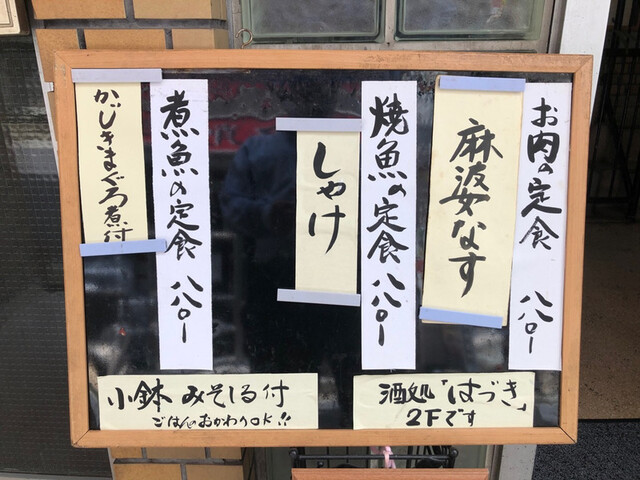 お肉の定食 八八〇ー
麻波女なす
焼魚の定食 八八〇ー
しゃけ
煮魚の定食 八八〇ー
かじきまぐろ煮付
酒処「はづき」
2Fです
小鉢 みそしる付
ごはんのおかわりOK!!